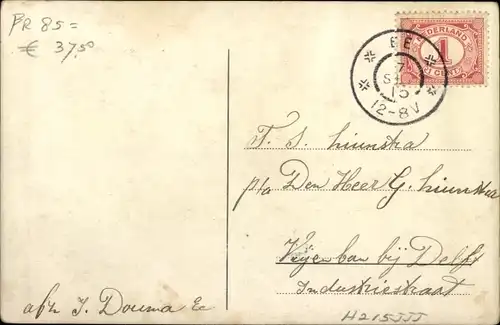 PR 85=
€ 37.50
NEDERLAND
1
CENT
EE
7
15
12-8V
T. S. Liunstra
p/a Den Heer G. Liunstra
Vrijenban bij Delft
Industriestraat
afz J. Douma Ee
H215JJJ